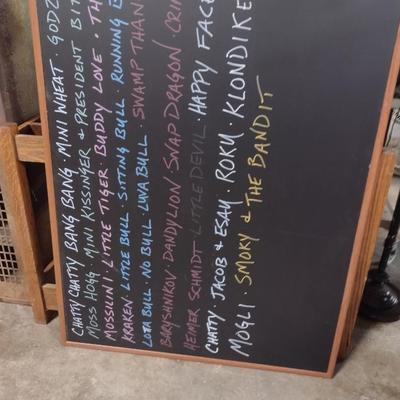 CHATTY CHATTY BANG BANG · MINI WHEAT · GODZ
MOSS HOGG · MINI KISSINGER & PRESIDENT BIT
MOSSILINI · LITTLE TIGER · BUDDY LOVE · TH
KRAKEN · LITTLE BULL · SITTING BULL · RUNNING B
LOTA BULL · NO BULL · LUVA BULL · SWAMP THAN
BARYSHNIKOV · DANDYLION · SNAP DRAGON · CRI
HEIMER SCHMIDT · LITTLE DEVIL · HAPPY FACE
CHATTY JACOB & ESAY · ROKU · KLONDIKE
MOGLI · SMOKY & THE BANDIT